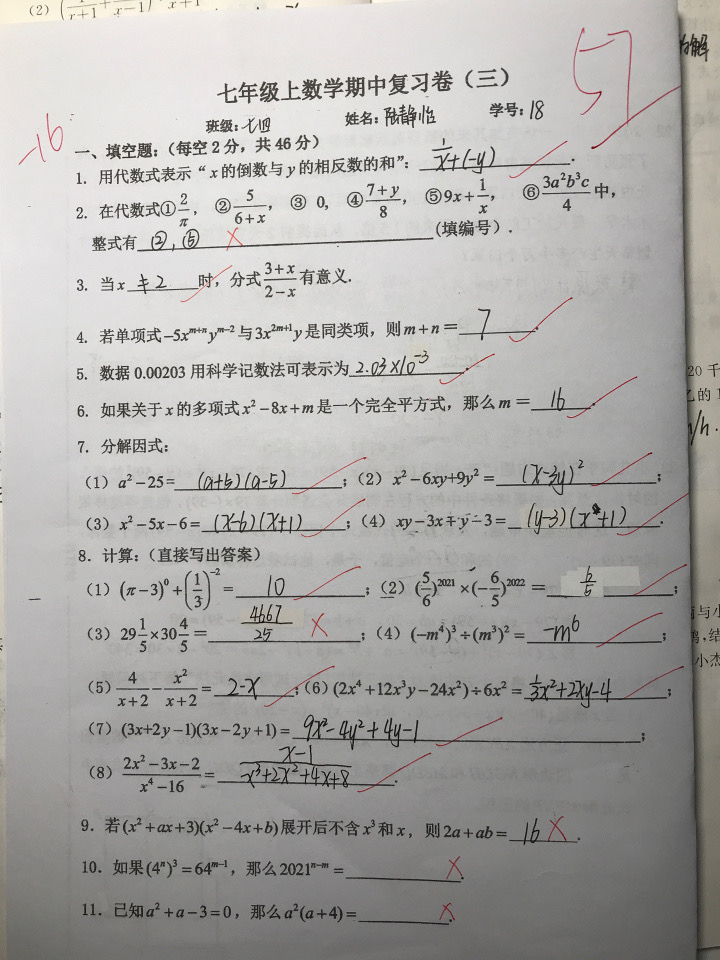 七年级上数学期中复习卷（三）
57
班级:七四 姓名: 学号:18
-16
一、填空题:（每空2分，共46分）
1. 用代数式表示“x的倒数与y的相反数的和”: 1/x+(-y).
2. 在代数式①2/π, ②5/(6+x), ③ 0, ④(7+y)/8, ⑤9x+1/x, ⑥3a²b³c/4中,
整式有 ②,⑤ (填编号).
3. 当x ≠2 时，分式(3+x)/(2-x)有意义.
4. 若单项式-5x^(m+n)y^(m-2)与3x^(2m+1)y是同类项，则m+n= 7.
5. 数据0.00203用科学记数法可表示为 2.03×10⁻³.
6. 如果关于x的多项式x²-8x+m是一个完全平方式，那么m= 16.
7. 分解因式:
(1) a²-25= (a+5)(a-5);(2) x²-6xy+9y²= (x-3y)²;
(3) x²-5x-6= (x-6)(x+1);(4) xy-3x+y-3= (y-3)(x+1).
8. 计算:（直接写出答案）
(1) (π-3)⁰+(1/3)⁻²= 10;(2) (5/6)²⁰²¹×(-6/5)²⁰²²= 6/5;
(3) 29 1/5×30 4/5= 4667/25;(4) (-m⁴)³÷(m³)²= -m⁶;
(5) 4/(x+2)-x²/(x+2)= 2-x;(6) (2x⁴+12x³y-24x²)÷6x²= 1/3x²+2xy-4;
(7) (3x+2y-1)(3x-2y+1)= 9x²-4y²+4y-1;
(8) (2x²-3x-2)/(x⁴-16)= (x-1)/(x³+2x²+4x+8).
9. 若(x²+ax+3)(x²-4x+b)展开后不含x³和x，则2a+ab= 16.
10. 如果(4ⁿ)³=64^(m-1)，那么2021^(n-m)=.
11. 已知a²+a-3=0，那么a²(a+4)=.